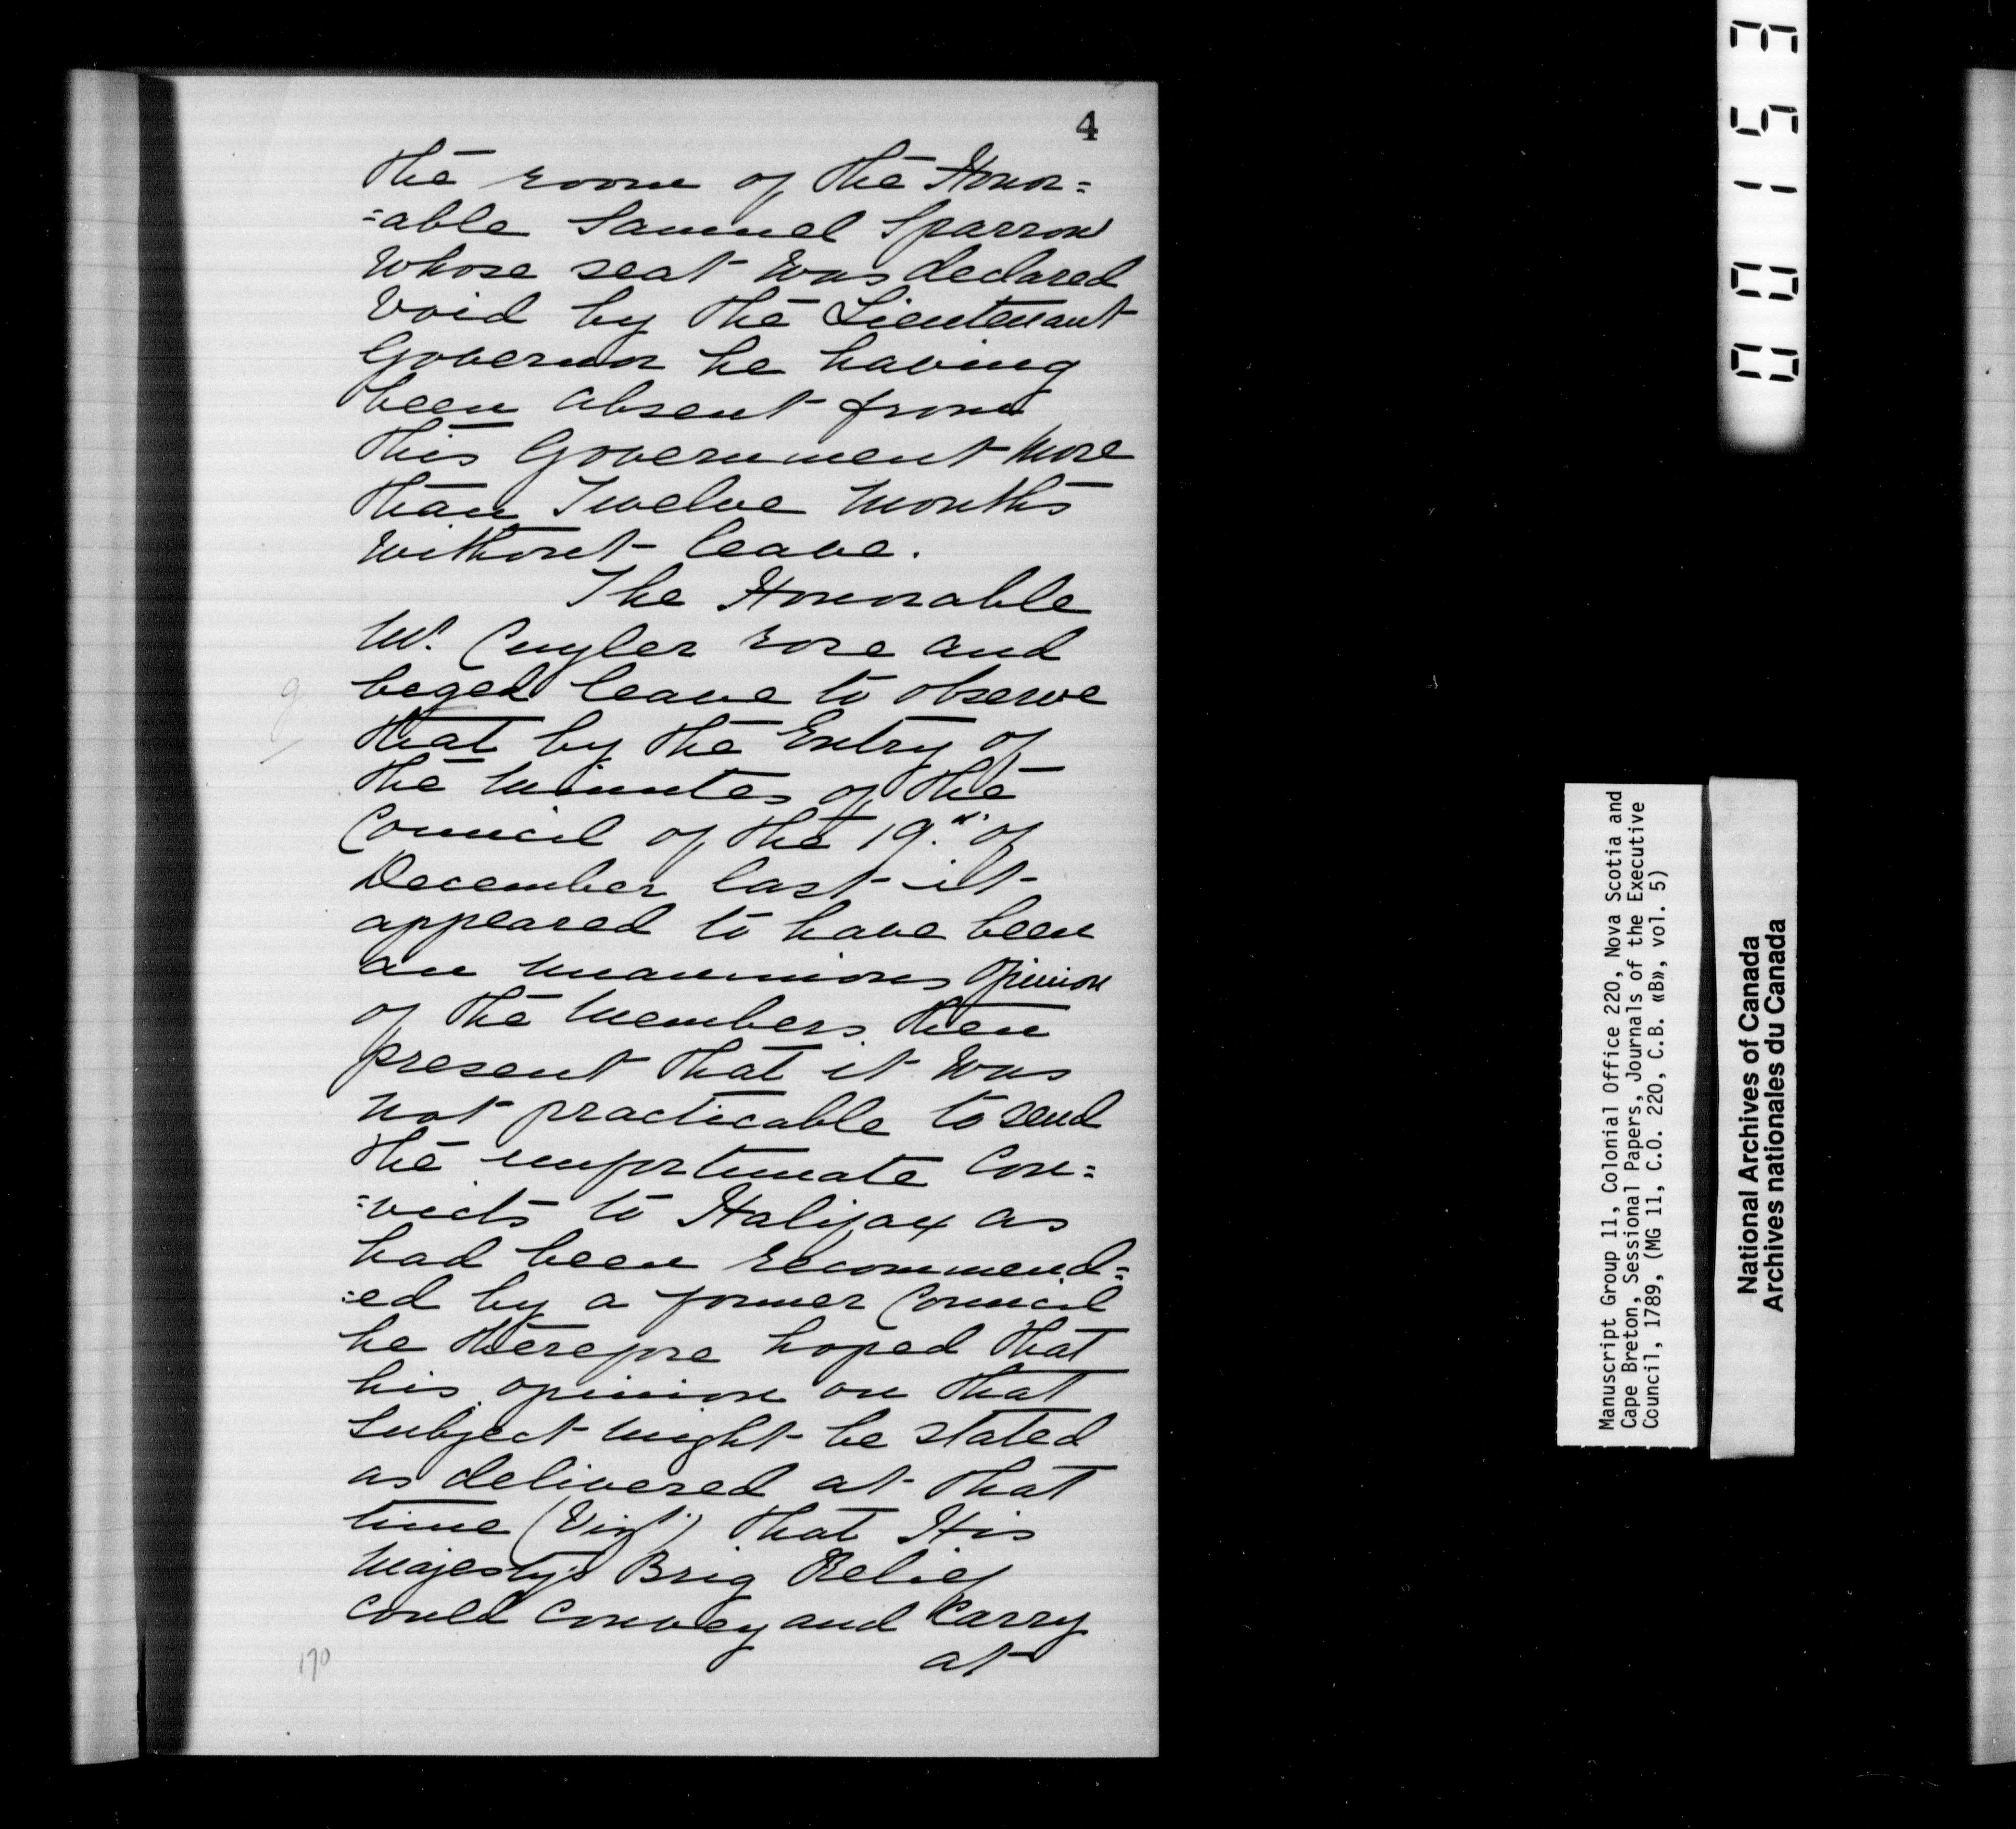 4
the room of the Honor=
=able Samuel Sparrow
whose seat was declared
Void by the Lieutenant
Governor he having
been absent from
this Government more
than Twelve months
without leave.
The Honorable
Mr. Cuyler rose and
beged leave to observe
that by the Entry of
the minutes of the
Council of the 19th. of
December last it
appeared to have been
an unanimous Opinion
of the members then
present that it was
not practicable to send
the unfortunate Con=
=victs to Halifax as
had been recommend=
=ed by a former Council
he therefore hoped that
his opinion on that
subject might be stated
as delivered at that
time (Vizt.) that His
Majesty's Brig Relief
could convey and Carry
at
g
170
00153
Manuscript Group 11, Colonial Office 220, Nova Scotia and
Cape Breton, Sessional Papers, Journals of the Executive
Council, 1789, (MG 11, C.O. 220, C.B. «B», vol. 5)
National Archives of Canada
Archives nationales du Canada